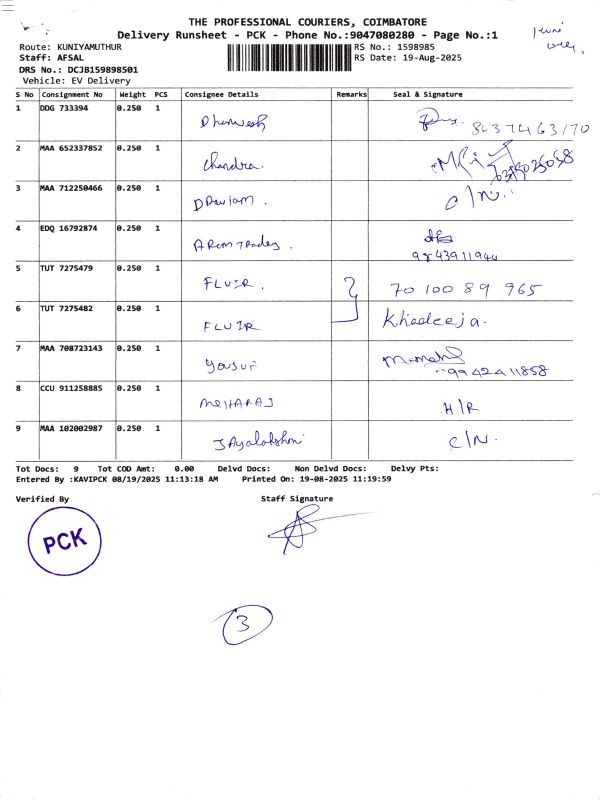 THE PROFESSIONAL COURIERS, COIMBATORE
Delivery Runsheet - PCK - Phone No.:9047080280 - Page No.:1
Route: KUNIYAMUTHUR
RS No.: 1598985
Staff: AFSAL
RS Date: 19-Aug-2025
DRS No.: DCJB159898501
Vehicle: EV Delivery
S No Consignment No Weight PCS Consignee Details Remarks Seal & Signature
1 DDG 733394 0.250 1 Dhanvesh
2 MAA 652337852 0.250 1 Chandra.
3 MAA 712250466 0.250 1 C/N.
4 EDQ 16792874 0.250 1 9843911944
5 TUT 7275479 0.250 1 FLUIR. 70 100 89 965
6 TUT 7275482 0.250 1 FLUIR Khadeeja.
7 MAA 708723143 0.250 1 Yousuf 99 42 42 11858
8 CCU 911258885 0.250 1 MEHARAJ H/R
9 MAA 102002987 0.250 1 JAyalakshmi C/N.
Tot Docs: 9 Tot COD Amt: 0.00 Delvd Docs: Non Delvd Docs: Delvy Pts:
Entered By :KAVIPCK 08/19/2025 11:13:18 AM Printed On: 19-08-2025 11:19:59
Verified By Staff Signature
PCK
3